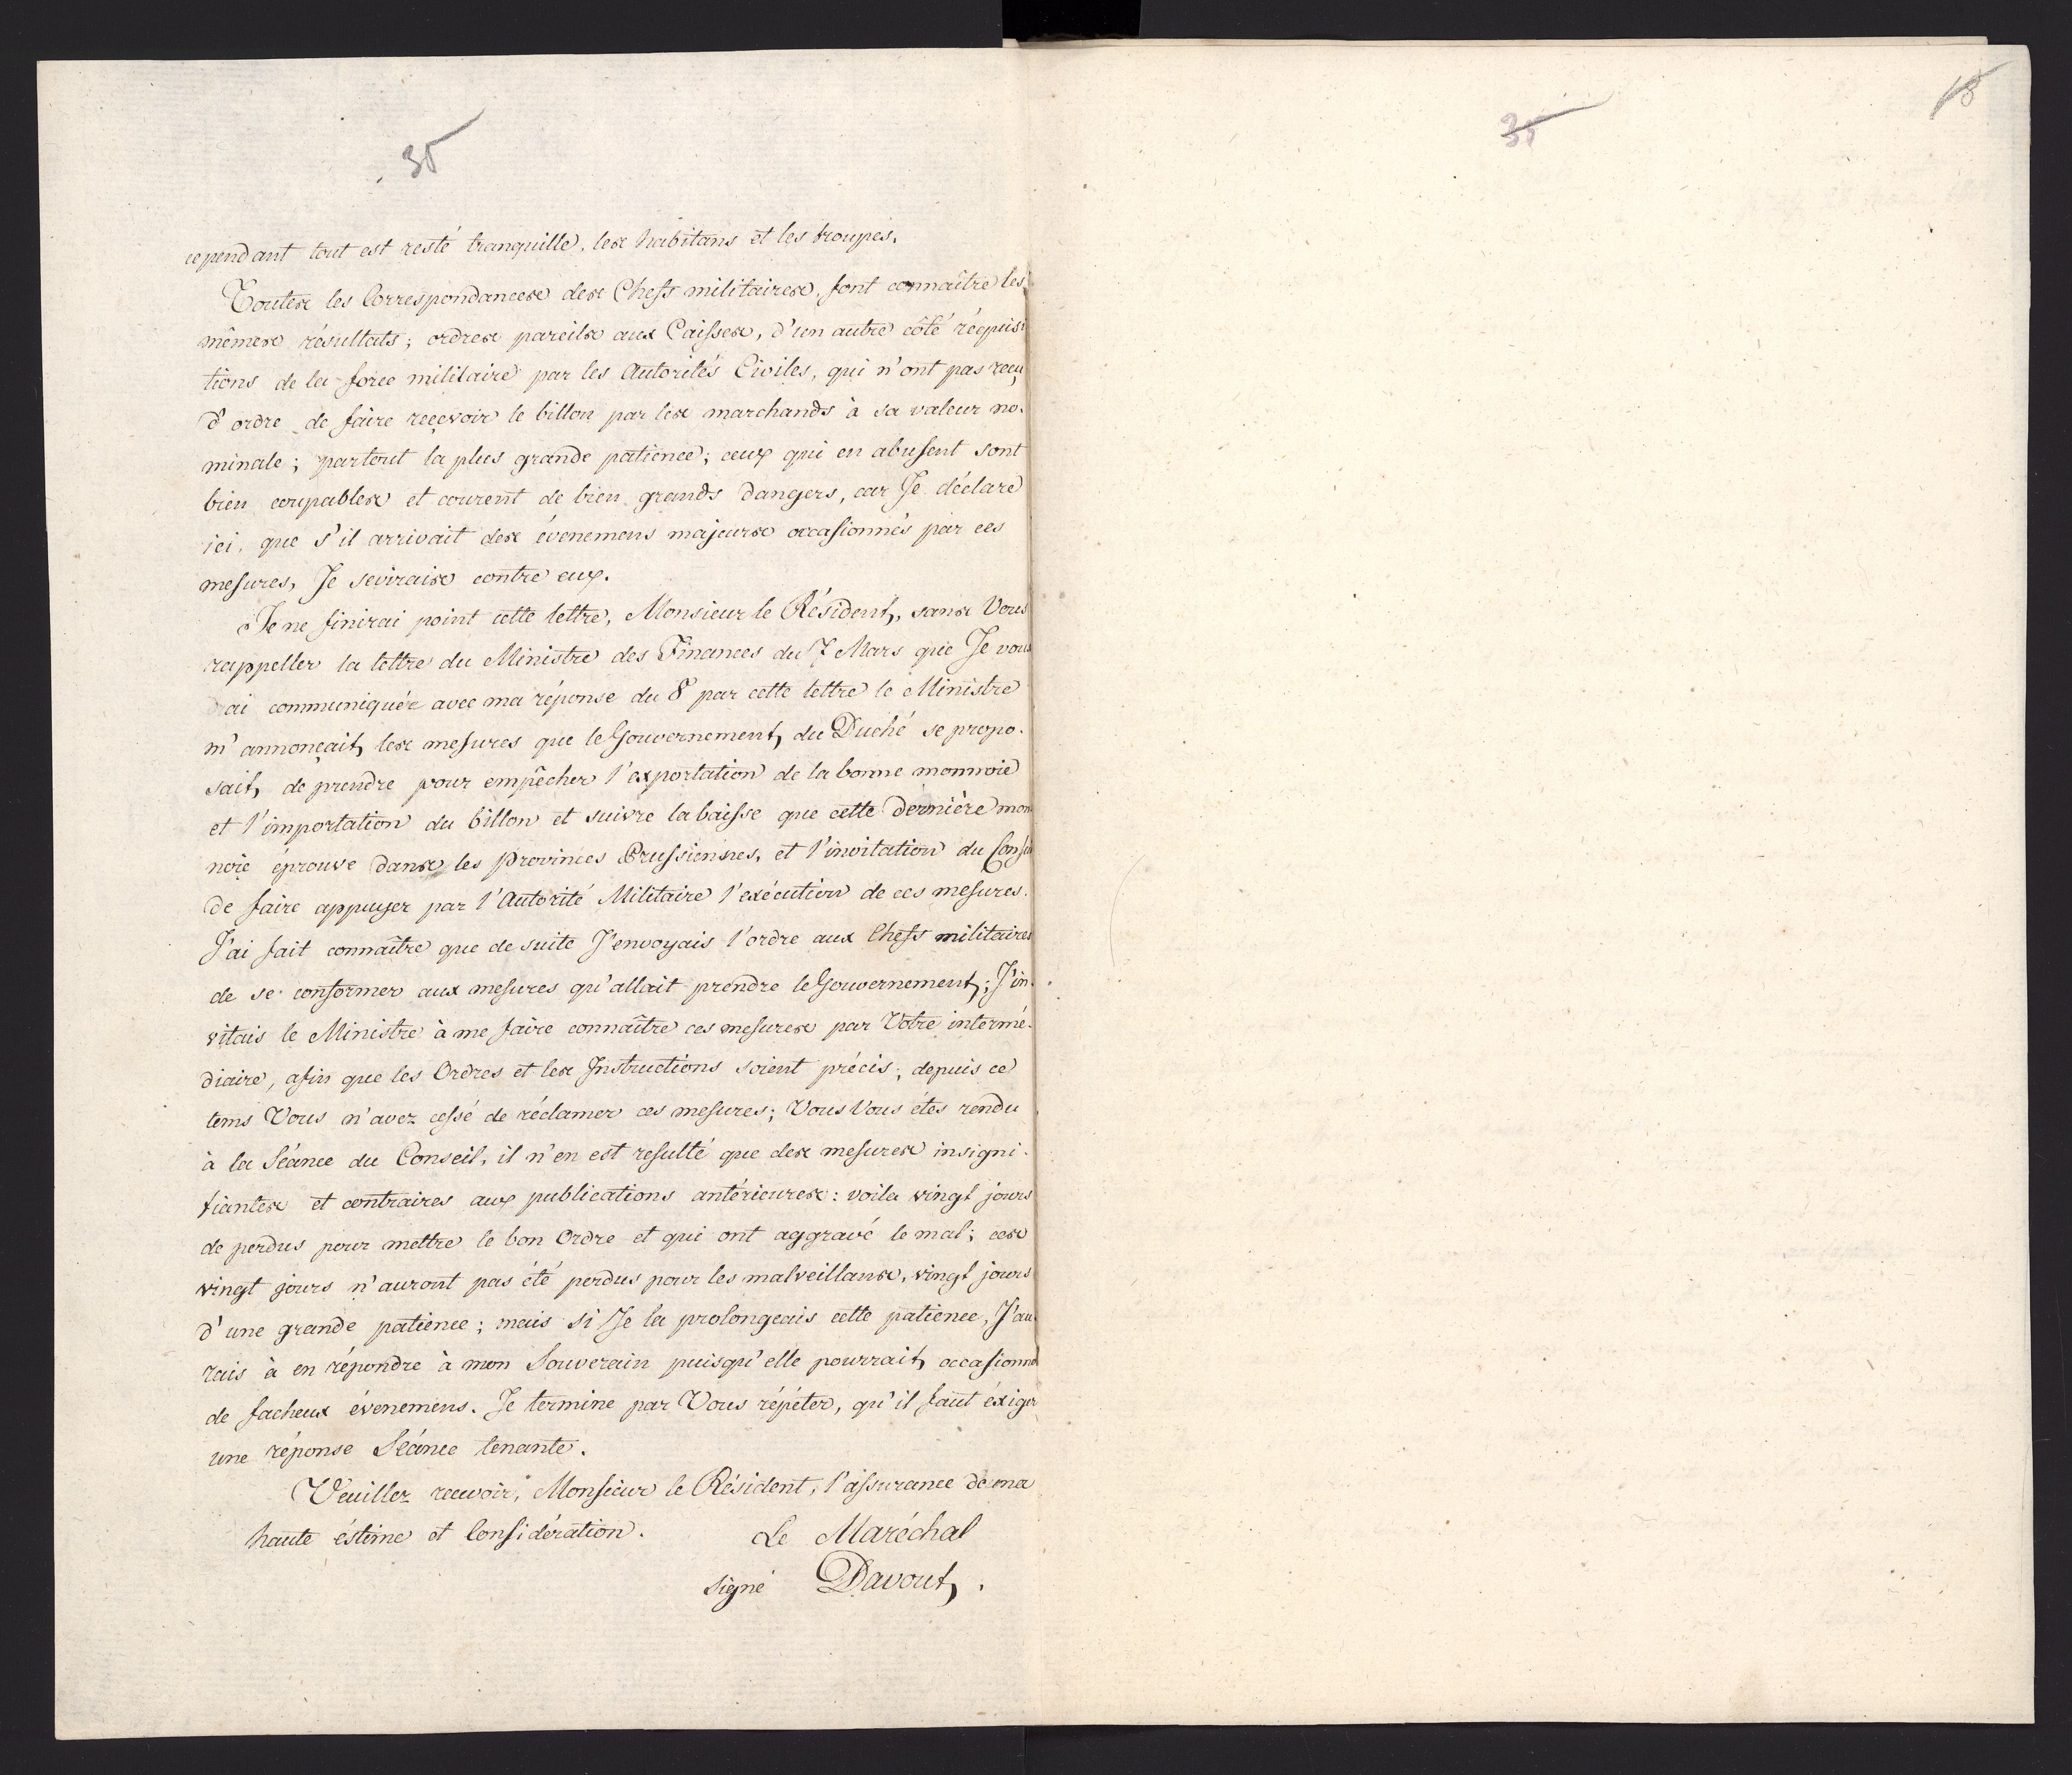 35
35
18
cependant tout est resté tranquille, les habitans et les troupes.
Toutes les Correspondances des Chefs militaires, font connaître les
mêmes résultats; ordres pareils aux Caisses, d'un autre côté réquisi
tions de la force militaire par les Autorités Civiles, qui n'ont pas reçu
d'ordre de faire reçevoir le billon par les marchands à sa valeur no-
minale; partout la plus grande patience; ceux qui en abusent sont
bien coupables et courent de bien grands dangers, car Je déclare
ici, que s'il arrivait des évenemens majeurs occasionnés par ces
mesures, Je sevirais contre eux.
Je ne finirai point cette lettre, Monsieur le Résident, sans Vous
rappeller la lettre du Ministre des Finances du 7 Mars que Je vous
ai communiquée avec ma réponse du 8 par cette lettre le Ministre
m'annonçait, les mesures que le Gouvernement, du Duché se propo-
sait, de prendre pour empêcher l'exportation de la bonne monnoie
et l'importation du billon et suivre la baisse que cette dernière mon
noie éprouve dans les provinces Prussiennes, et l'invitation du Conseil
de faire appuyer par l'Autorité Militaire l'exécution de ces mesures.
J'ai fait connaître que de suite J'envoyais l'ordre aux Chefs militaires
de se conformer aux mesures qu'allait prendre le Gouvernement; J'in-
vitais le Ministre à me faire connaître ces mesures par Votre intermé-
diaire, afin que les Ordres et les Instructions soient précis; depuis ce
tems Vous n'avez cessé de réclamer ces mesures; Vous Vous étes rendu
à la Séance du Conseil, il n'en est resulté que des mesures insigni-
fiantes et contraires aux publications antérieures: voila vingt jours
de perdus pour mettre le bon Ordre et qui ont aggravé le mal; ces
vingt jours n'auront pas été perdus pour les malveillans, vingt jours
d'une grande patience; mais si Je la prolongeais cette patience, J'au-
rais à en répondre à mon Souverain puisqu'elle pourrait, occasionner
de facheux évenemens. Je termine par Vous répéter, qu'il faut éxiger
une réponse Séance tenante.
Veuillez recevoir, Monsieur le Résident, l'assurance de ma
haute éstime et Considération. Le Maréchal
signé Davout,